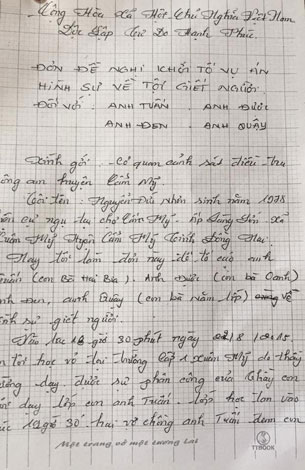 Cộng Hòa Xã Hội Chủ Nghĩa Việt Nam
Độc Lập Tự Do Hạnh Phúc.
ĐƠN ĐỀ NGHỊ KHỞI TỐ VỤ ÁN
HÌNH SỰ VỀ TỘI GIẾT NGƯỜI
ĐỐI VỚI . ANH TUẤN . ANH ĐỨC
ANH ĐEN . ANH QUẬY
Kính gởi . Cơ quan cảnh sát điều tra
công an huyện Cẩm Mỹ.
Tôi tên . Nguyễn sinh năm 1978
ngụ tại chợ Cẩm Mỹ . ấp xã
Xuân Mỹ huyện Cẩm Mỹ tỉnh Đồng Nai.
Nay tôi làm đơn này để tố cáo anh
Tuấn (con Bé Hai Bia). Anh Đức (con bà Oanh)
anh Đen, anh Quậy (con bà Năm lốp) về
hình sự giết người.
Vào lúc giờ 30 phút ngày
tôi học võ tại trường cấp 1 Xuân Mỹ do thầy
dạy dưới sự phân công của thầy con
dạy lớp con anh Tuấn . lớp học tan vào
lúc 19 giờ 30' hai vợ chồng anh Tuấn đem con
Một trang vở một tương lai
TTBOOK